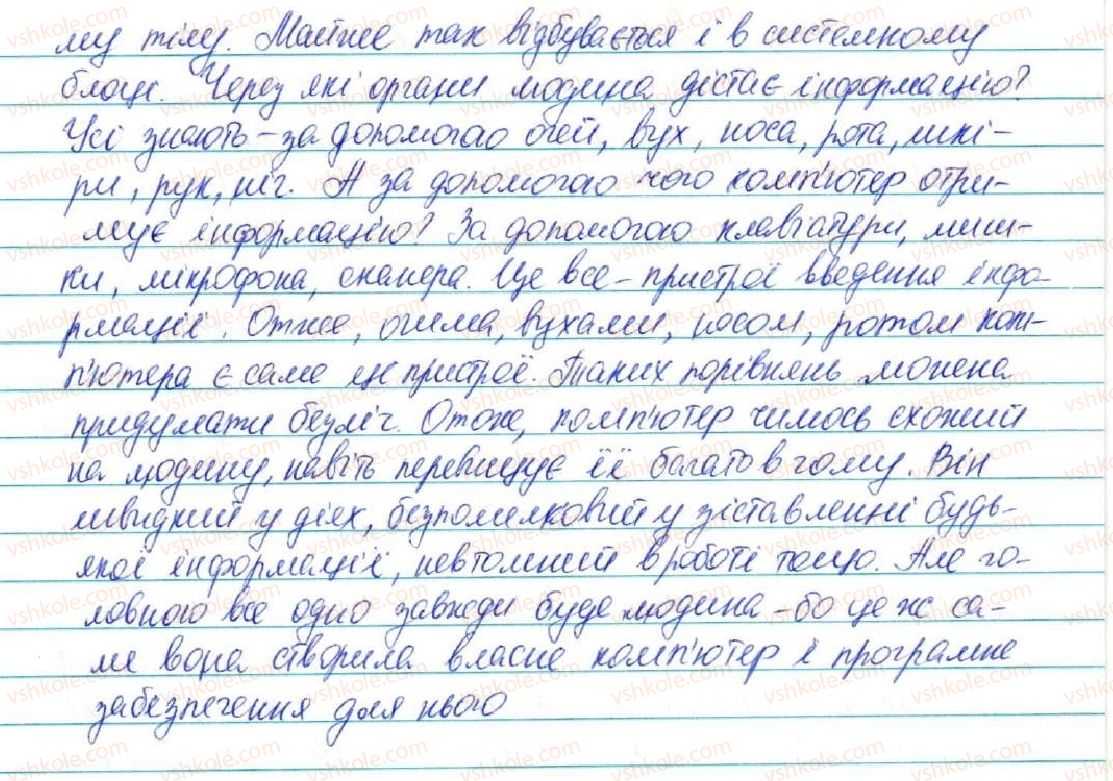 му тілу. Майже так відбувається і в системному
блоці. Через які органи людина дістає інформацію?
Усі знають – за допомогою очей, вух, носа, рота, шкі-
ри, рук, ніг. А за допомогою чого комп'ютер отри-
мує інформацію? За допомогою клавіатури, миш-
ки, мікрофона, сканера. Це все – пристрої введення інфо-
рмації. Отже, очима, вухами, носом, ротом ком-
п'ютера є саме ці пристрої. Таких порівнянь можна
придумати безліч. Отже, комп'ютер чимось схожий
на людину, навіть перевищує її багато в чому. Він
швидкий у діях, безпомилковий у зіставленні будь-
якої інформації, невтомний в роботі тощо. Але го-
ловною все одно завжди буде людина – бо це ж са-
ме вона створила власне комп'ютер і програмне
забезпечення для нього